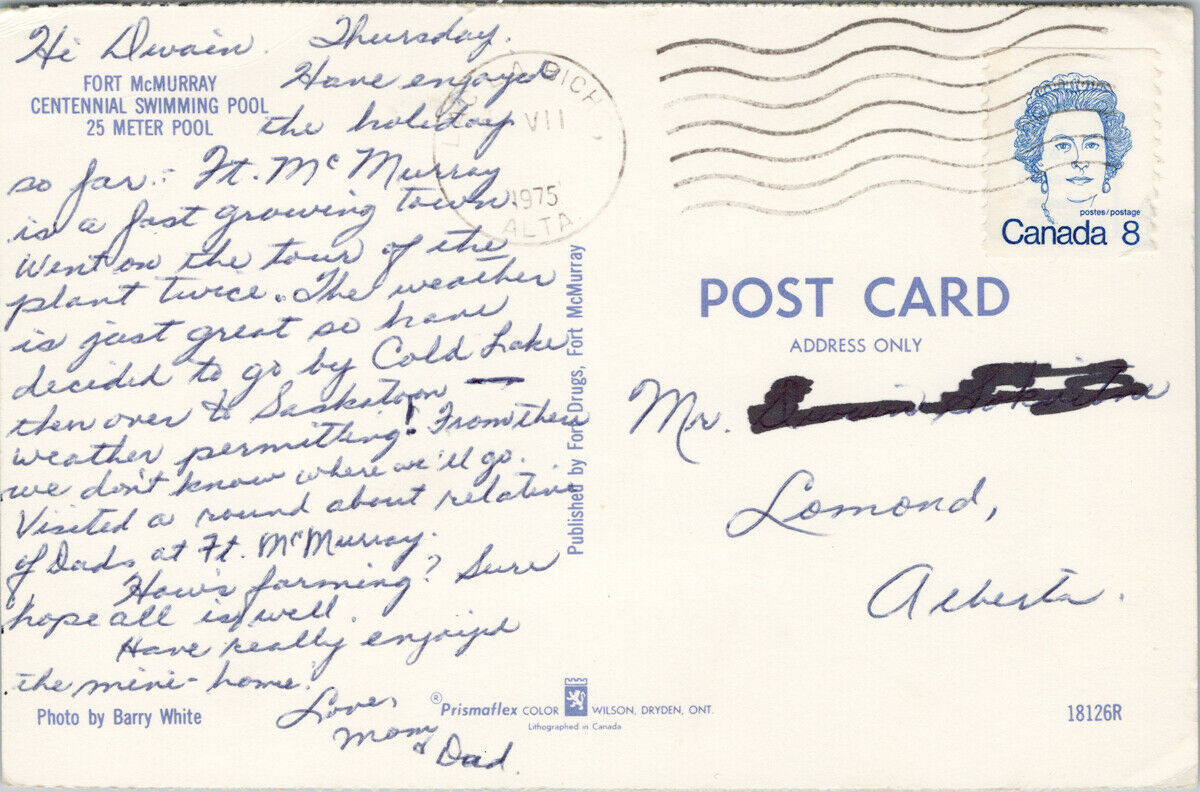 Hi Dwain. Thursday.
FORT McMURRAY
CENTENNIAL SWIMMING POOL
25 METER POOL
Have enjoyed
the holiday
so far. Ft. McMurray
is a fast growing town.
Went on the tour of the
plant twice. The weather
is just great so have
decided to go by Cold Lake
then over to Saskatoon —
weather permitting! From there
we don't know where we'll go.
Visited a round about relative
of Dads at Ft. McMurray.
How's farming? Sure
hope all is well.
Have really enjoyed
the mini-home.
Love,
Mom
& Dad.
Photo by Barry White
Published by Fort Drugs, Fort McMurray
® Prismaflex COLOR WILSON, DRYDEN, ONT.
Lithographed in Canada
VII
1975
ALTA
postes/postage
Canada 8
POST CARD
ADDRESS ONLY
Mr.
Lomond,
Alberta.
18126R